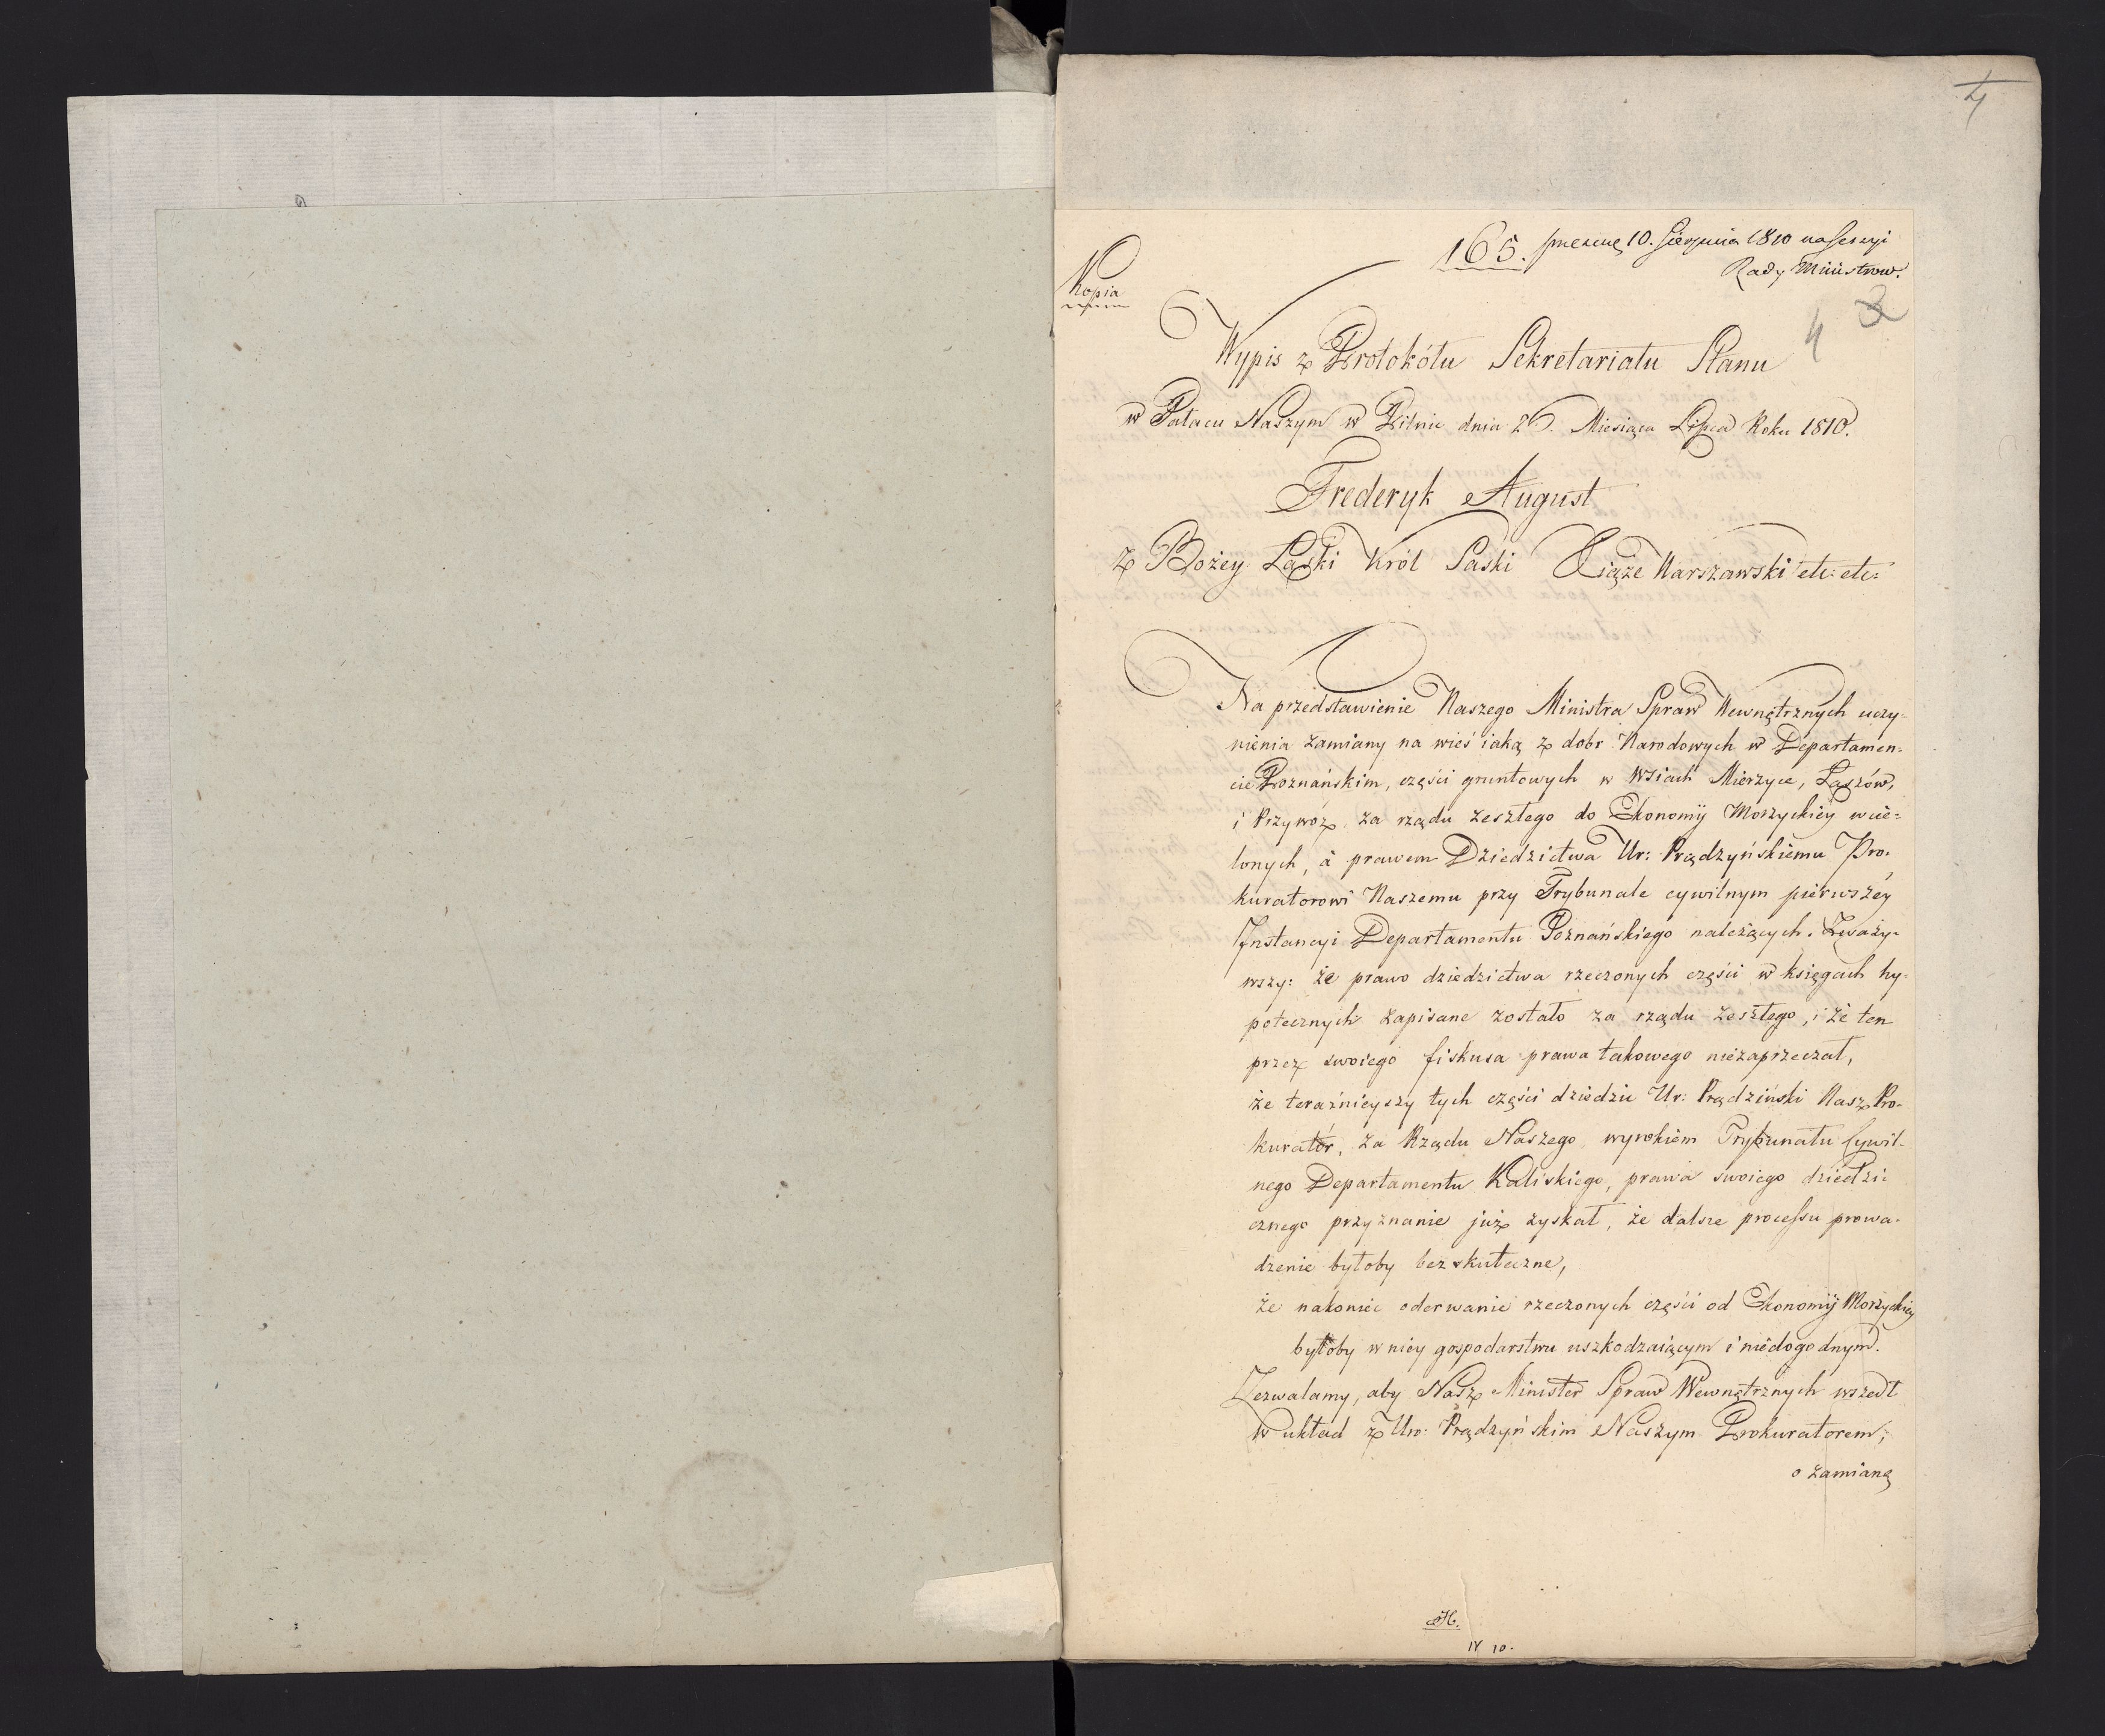 4
165. 10. Sierpnia 1810 na Sessyi
Rady Ministrow.
Kopia
4 3
Wypis z Protokółu Sekretariatu Stanu
w Pałacu Naszym w Pilnic dnia 26. Miesiąca Lipca Roku 1810.
Frederyk August
z Bożey Łaski Król Saski Xiąże Warszawski etc: etc:
Na przedstawienie Naszego Ministra Spraw Wewnętrznych uczy-
nienia zamiany na wieś iaką z dobr Narodowych w Departamen-
cie Poznańskim, części gruntowych w wsiach Mierzyce, Łaszów,
i Przywóz za rządu zeszłego do Ekonomij Morzyckiey wcie-
lonych, a prawem Dziedzictwa Ur: Prądzyńskiemu Pro-
kuratorowi Naszemu przy Trybunale cywilnym pierwszéy
Instancyi Departamentu Poznańskiego należących. Zważy-
wszy: że prawo dziedzictwa rzeczonych części w księgach hy-
potecznych zapisane zostało za rządu zeszłego, i że ten
przez swoiego fiskusa prawa takowego niezaprzeczał,
że teraźnieyszy tych części dziedzic Ur: Prądziński Nasz Pro-
kuratór, za Rządu Naszego wyrokiem Trybunału Cywil-
nego Departamentu Kaliskiego, prawa swoiego dziedzi-
cznego przyznanie już zyskał, że dalsze processu prowa-
dzenie byłoby bezskuteczne,
że nakoniec oderwanie rzeczonych części od Ekonomij Morzyckiey
byłoby w niey gospodarstwu uszkodzaiącym i niedogodnym.
Zezwalamy, aby Nasz Minister Spraw Wewnętrznych wszedł
w układ z Ur: Prądzyńskim Naszym Prokuratorem,
o zamianę
10.